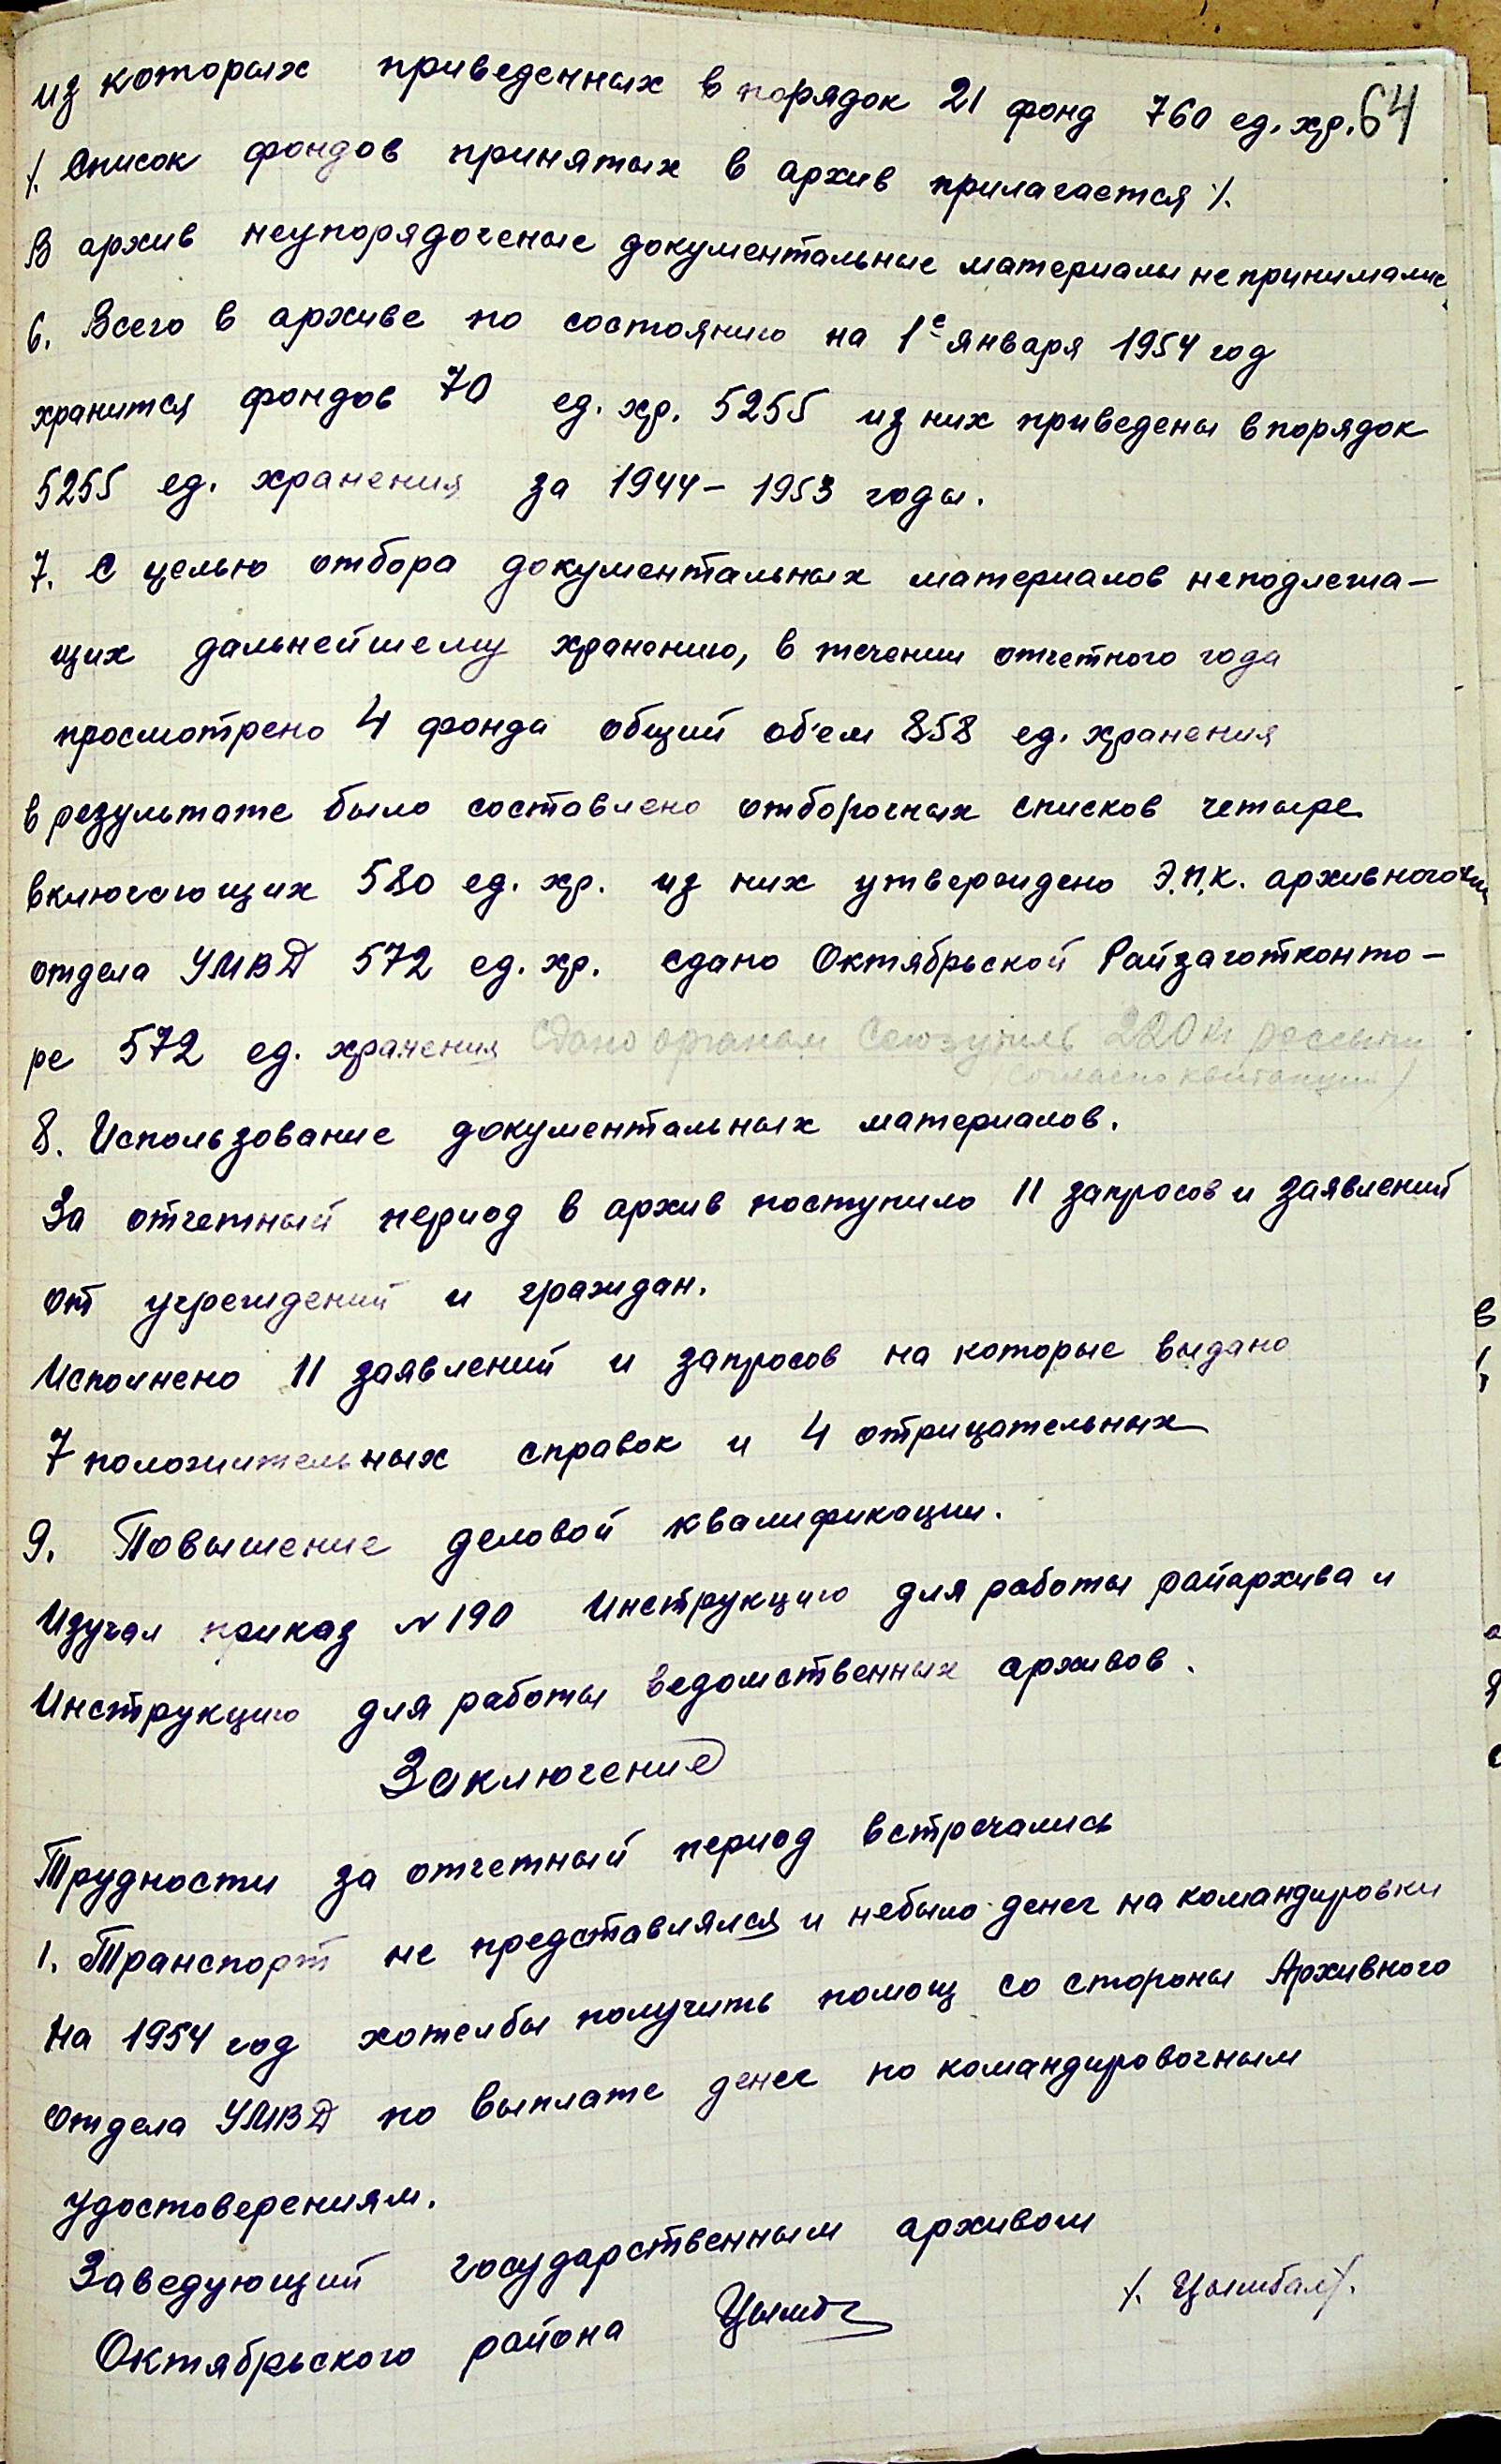 из которых приведенных в порядок 21 фонд 760 ед. хр. 64
/. Список фондов принятых в архив прилагается /.
В архив неупорядоченые документальные материалы не принимались
6. Всего в архиве по состоянию на 1е января 1954 год
хранится фондов 70 ед. хр. 5255 из них приведены в порядок
5255 ед. хранения за 1944 – 1953 годы.
7. С целью отбора документальных материалов неподлежа-
щих дальнейшему хранению, в течении отчетного года
просмотрено 4 фонда общий об'ем 858 ед. хранения
в результате было составлено отборочных списков четыре
включающих 580 ед. хр. из них утверждено Э.П.К. архивного
отдела УМВД 572 ед. хр. сдано Октябрьской Райзаготконто-
ре 572 ед. хранения сдано органам Союзутиль 220 кг
(согласно квитанции)
8. Использование документальных материалов.
За отчетный период в архив поступило 11 запросов и заявлений
от учреждений и граждан.
Исполнено 11 заявлений и запросов на которые выдано
7 положительных справок и 4 отрицательных
9. Повышение деловой квалификации.
Изучал приказ №190 Инструкцию для работы райархива и
Инструкцию для работы ведомственных архивов.
Заключение
Трудности за отчетный период встречались
1. Транспорт не представлялся и небыло денег на командировки
На 1954 год хотелбы получить помощ со стороны Архивного
отдела УМВД по выплате денег по командировочным
удостоверениям.
Заведующий государственным архивом
Октябрьского района Цымб /. Цымбал/.